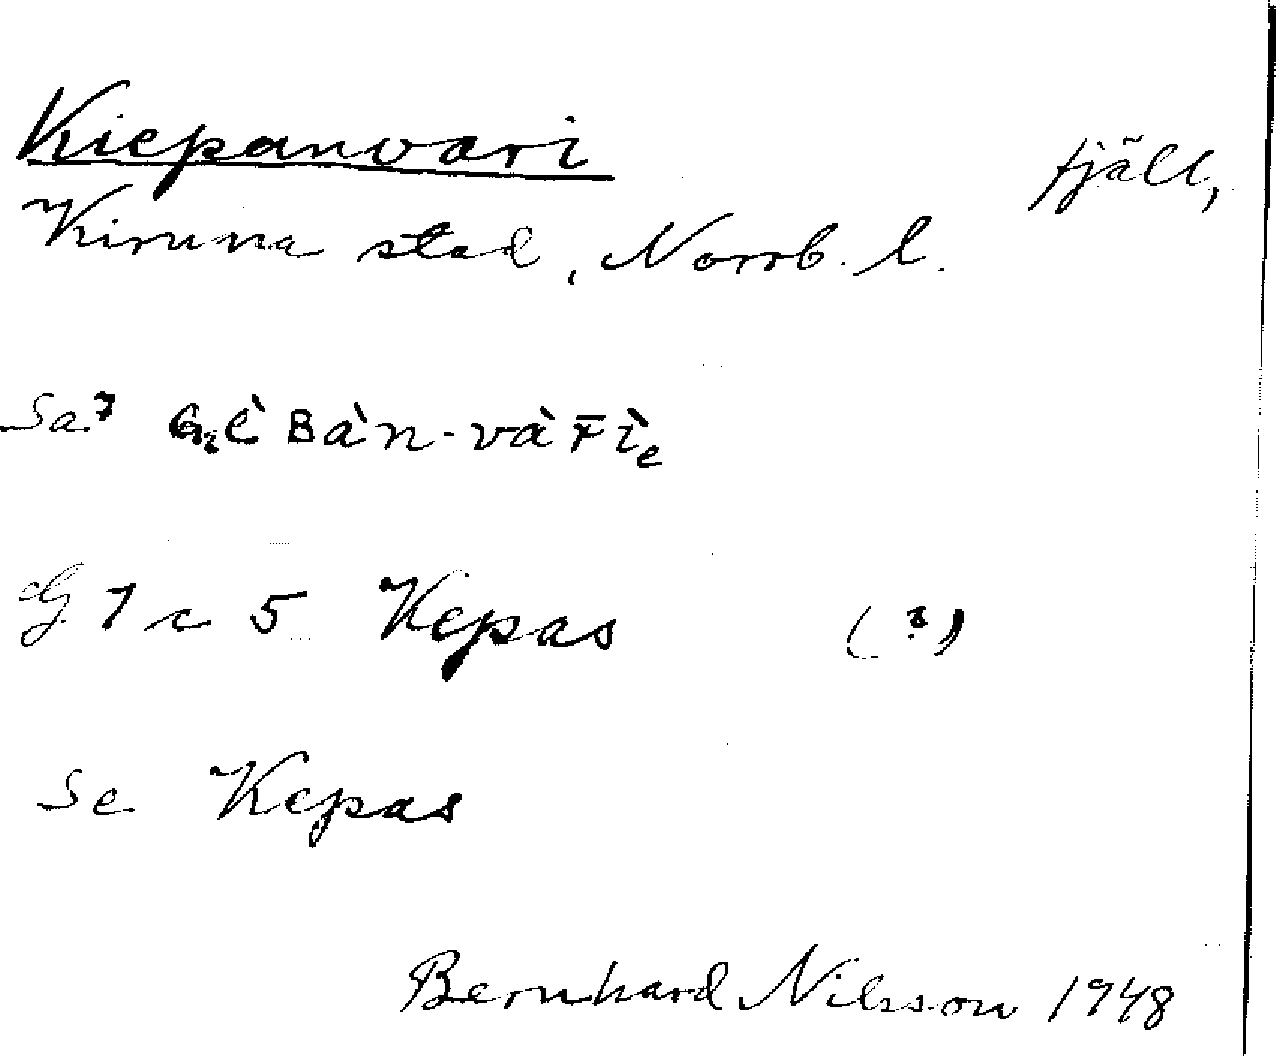 Kiepanvari fjäll,
Kiruna stad, Norrb. l.
Sa7 G₂è Bàn-và r̄ìₑ
G 1 c 5 Kepas (?)
Se Kepas
Bernhard Nilsson 1948